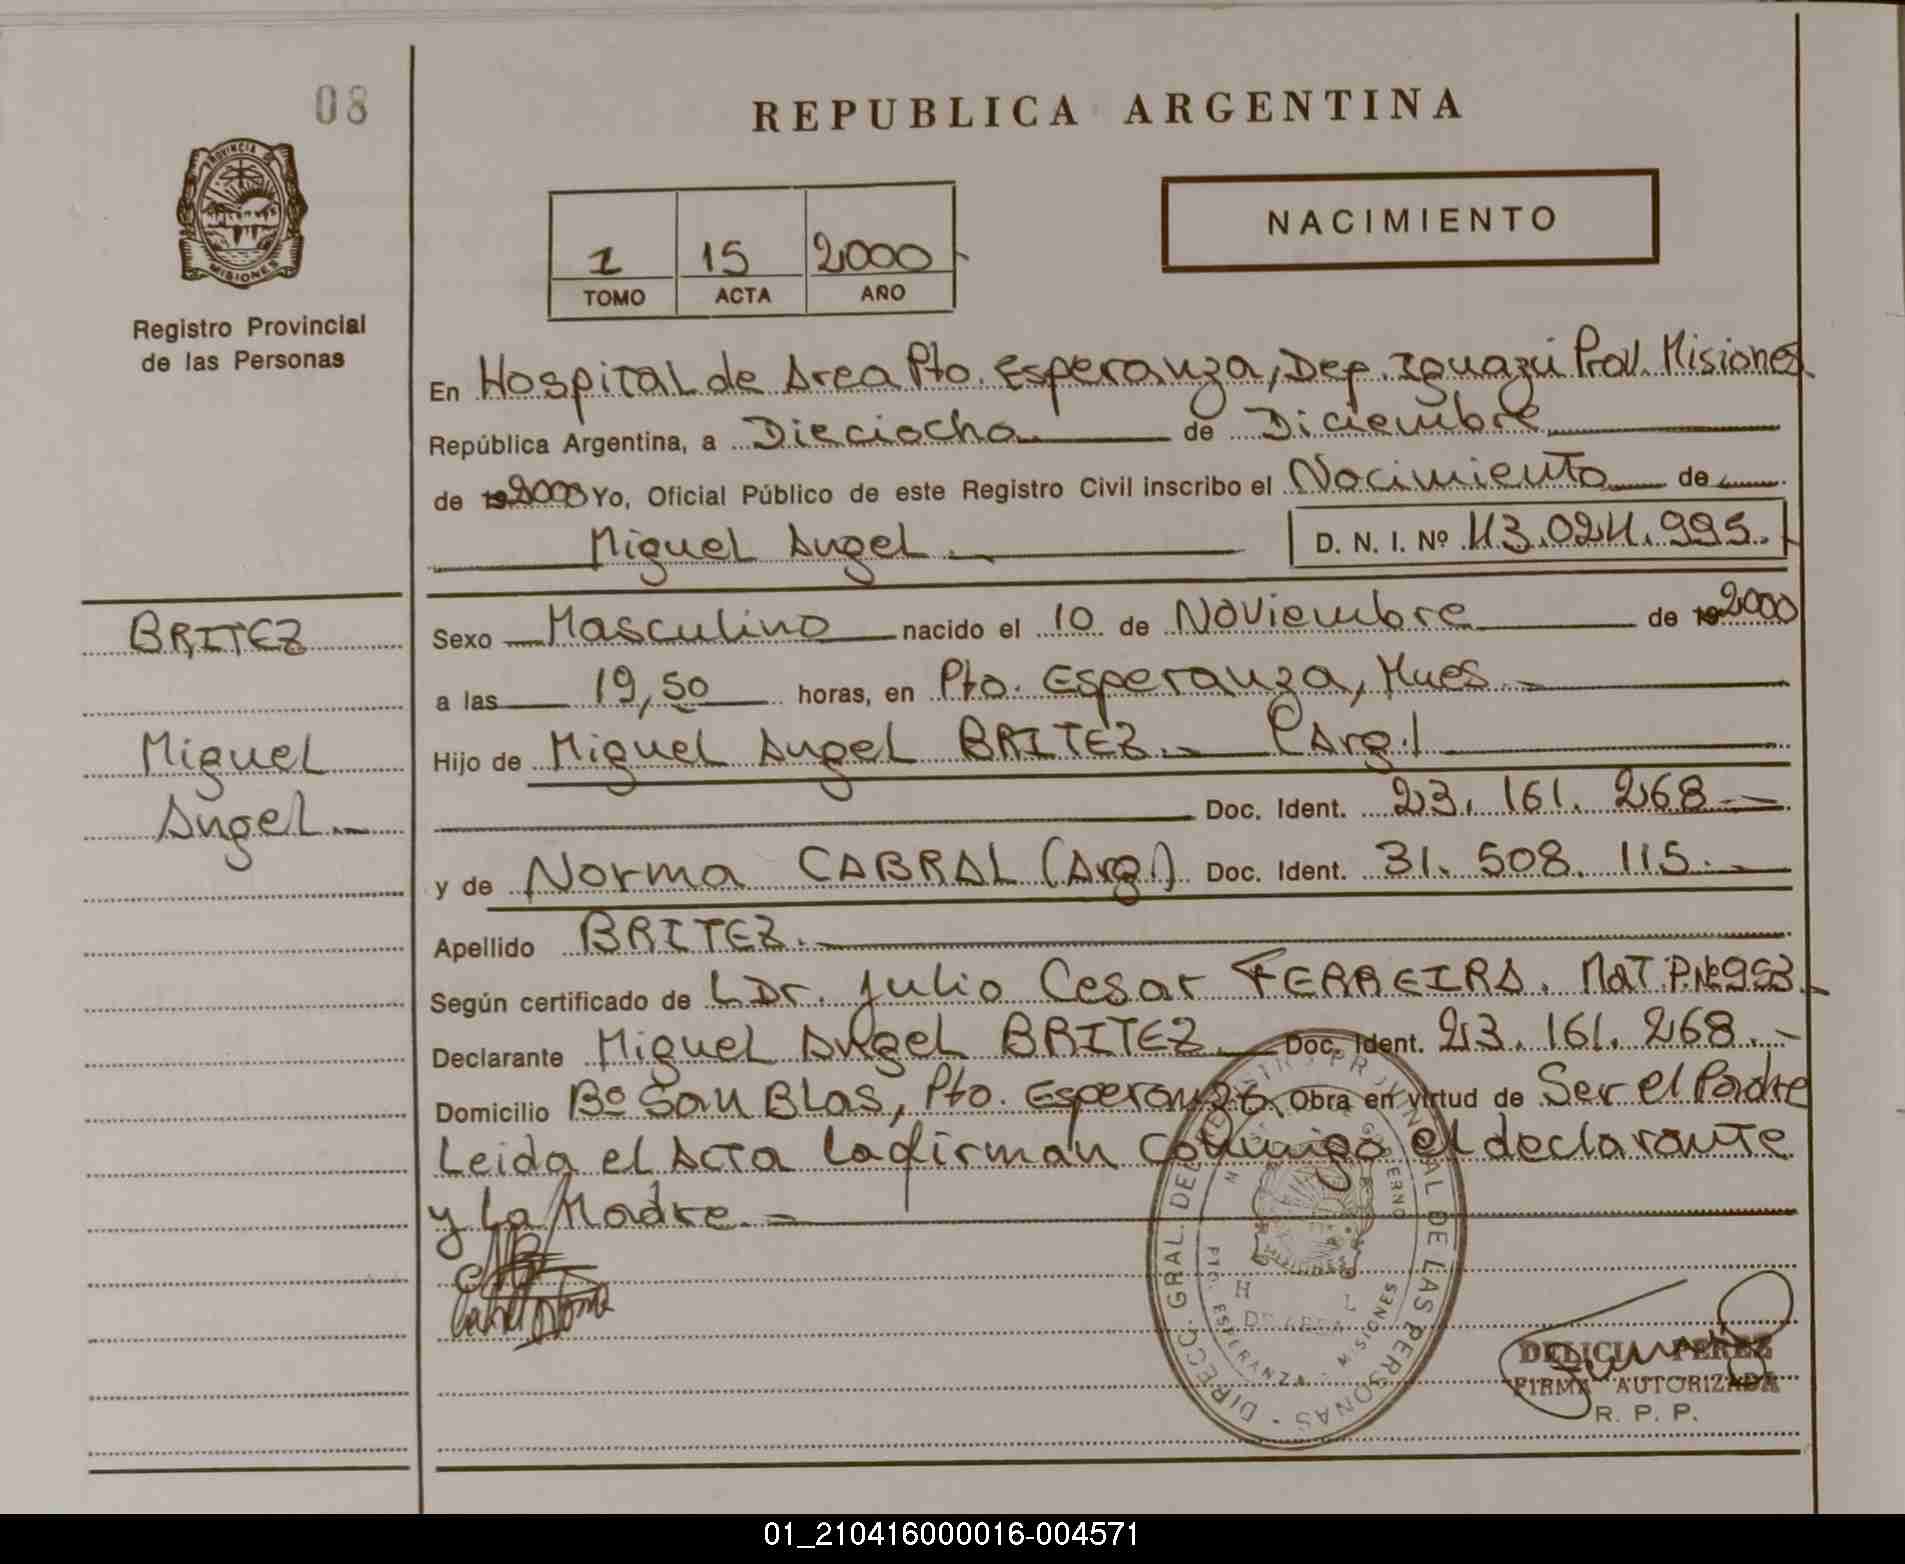 08
REPUBLICA ARGENTINA
PROVINCIA DE
MISIONES
Registro Provincial
de las Personas
1 15 2000
TOMO ACTA AÑO
NACIMIENTO
En Hospital de Area Pto. Esperanza, Dep. Iguazú Prov. Misiones
República Argentina, a Dieciocho de Diciembre
de 192000 Yo, Oficial Público de este Registro Civil inscribo el Nacimiento de
Miguel Angel D. N. I. Nº 43.024.995.
BRITEZ
Miguel
Angel.
Sexo Masculino nacido el 10 de Noviembre de 192000
a las 19,50 horas, en Pto. Esperanza, Mnes
Hijo de Miguel Angel BRITEZ (Arg.)
Doc. Ident. 23. 161. 268
y de Norma CABRAL (Arg.) Doc. Ident. 31. 508. 115.
Apellido BRITEZ.
Según certificado de L Dr. Julio Cesar FERREIRA. MAT. P. Nº 953
Declarante Miguel Angel BRITEZ Doc. Ident. 23. 161. 268.
Domicilio Bº San Blas, Pto. Esperanza Obra en virtud de Ser el Padre
Leida el Acta la firman conmigo el declarante
y la Madre.
DIRECC. GRAL. DEL REGISTRO PROVINCIAL DE LAS PERSONAS
PTO. ESPERANZA - MISIONES
DELICIA PEREZ
FIRMA AUTORIZADA
R. P. P.
01_210416000016-004571